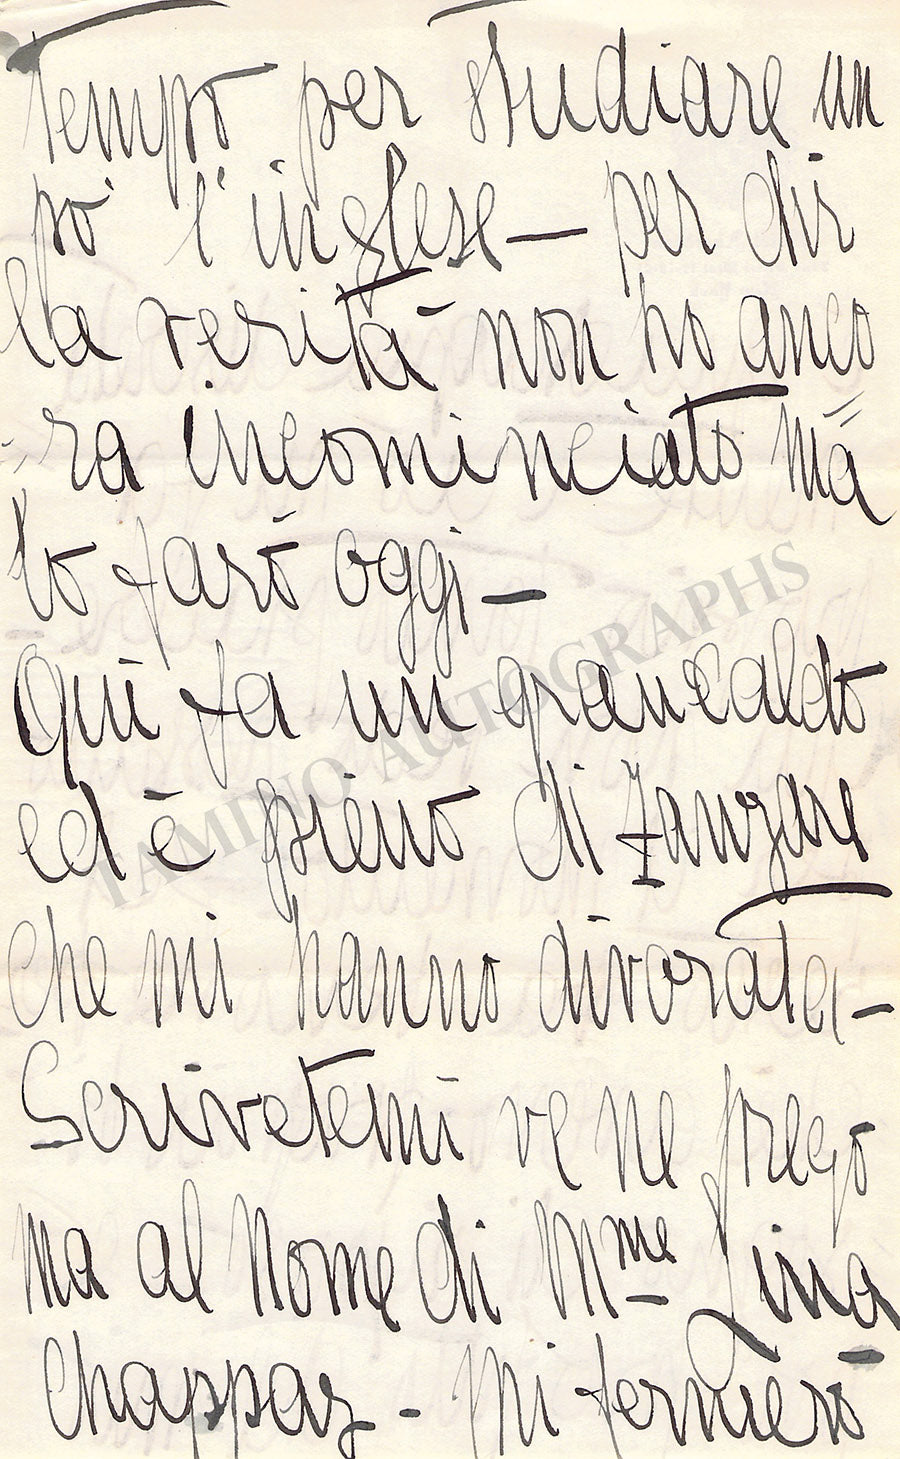 Tempo per studiare un
pò l'inglese — per dir
la verità non ho anco
ra incominciato mà
lo farò oggi —
Qui fa un gran caldo
ed è pieno di zanzare
TAMINO AUTOGRAPHS
che mi hanno divorata —
Scrivetemi ve ne prego
ma al nome di Mme Lina
Chappaz - Mi fermerò